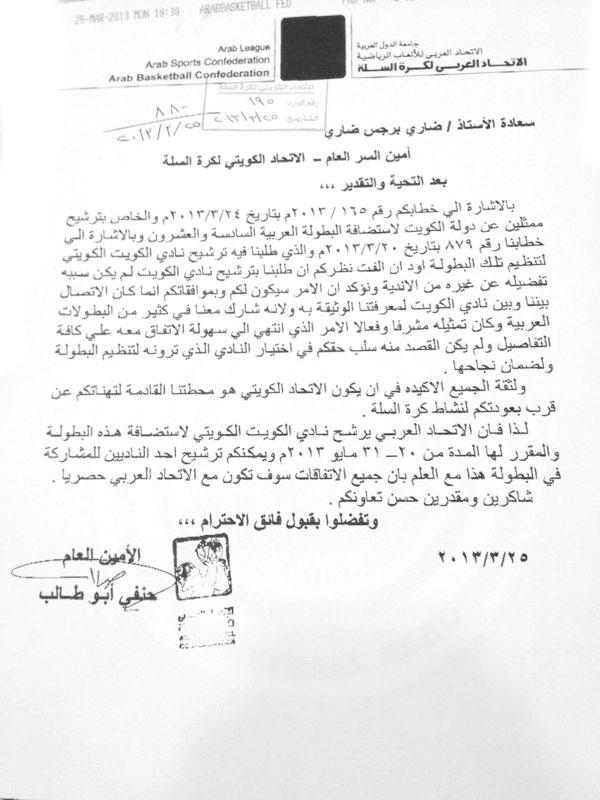 26-MAR-2013 MON 19:39 ARABBASKETBALL FED
Arab League
Arab Sports Confederation
Arab Basketball Confederation
جامعة الدول العربية
الاتحاد العربي للألعاب الرياضية
الاتحاد العربي لكرة السلة
الاتحاد الكويتي لكرة السلة
رقم الوارد: ١٩٥
التاريخ: ٢٠١٣/٣/٢٥
٨٨٠
٢٠١٣/٣/٢٥
سعادة الأستاذ / ضاري برجس ضاري
أمين السر العام – الاتحاد الكويتي لكرة السلة
بعد التحية والتقدير ،،،
بالاشارة الي خطابكم رقم ١٦٥ / ٢٠١٣م بتاريخ ٢٠١٣/٣/٢٤م والخاص بترشيح
ممثلين عن دولة الكويت لاستضافة البطولة العربية السادسة والعشرون وبالاشارة الي
خطابنا رقم ٨٧٩ بتاريخ ٢٠١٣/٣/٢٠م والذي طلبنا فيه ترشيح نادي الكويت الكويتي
لتنظيم تلك البطولة اود ان الفت نظركم ان طلبنا بترشيح نادي الكويت لم يكن سببه
تفضيله عن غيره من الاندية ونؤكد ان الامر سيكون لكم وبموافقاتكم انما كان الاتصال
بيننا وبين نادي الكويت لمعرفتنا الوثيقة به ولانه شارك معنا في كثير من البطولات
العربية وكان تمثيله مشرفا وفعالا الامر الذي انتهي الي سهولة الاتفاق معه علي كافة
التفاصيل ولم يكن القصد منه سلب حقكم في اختيار النادي الذي ترونه لتنظيم البطولة
ولضمان نجاحها .
ولثقة الجميع الاكيده في ان يكون الاتحاد الكويتي هو محطتنا القادمة لتهناتكم عن
قرب بعودتكم لنشاط كرة السلة .
لذا فان الاتحاد العربي يرشح نادي الكويت الكويتي لاستضافة هذه البطولة
والمقرر لها المدة من ٢٠ – ٣١ مايو ٢٠١٣م ويمكنكم ترشيح احد الناديين للمشاركة
في البطولة هذا مع العلم بان جميع الاتفاقات سوف تكون مع الاتحاد العربي حصريا .
شاكرين ومقدرين حسن تعاونكم .
وتفضلوا بقبول فائق الاحترام ،،،
٢٠١٣/٣/٢٥
الأمين العام
حنفي أبو طالب